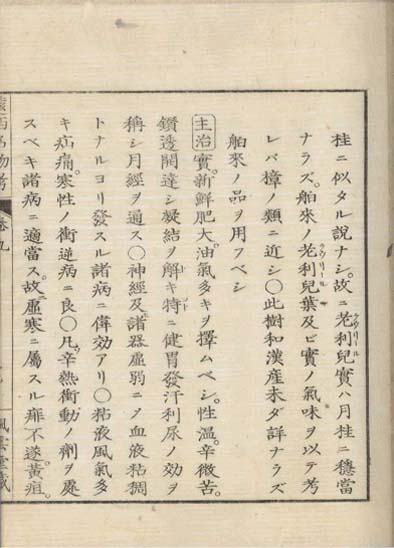 桂ニ似タル說ナシ。故ニ老利兒實ハ月桂ニ穩當
ナラズ。舶來ノ老利兒葉及ビ實ノ氣味ヲ以テ考
レバ樟ノ類ニ近シ〇此樹和漢産未ダ詳ナラズ
舶來ノ品ヲ用フベシ
主治 實。新鮮肥大。油氣多キヲ擇ムベシ。性溫。辛微苦。
鑽透開達シ凝結ヲ解キ特ニ健胃發汗利尿ノ効ヲ
稱シ月經ヲ通ス〇神經及諸器虛弱ニメ血液粘稠
トナルヨリ發スル諸病ニ偉効アリ〇粘液風氣多
キ疝痛。寒性ノ衝逆病ニ良〇凡辛熱衝動ノ劑ヲ處
スベキ諸病ニ適當ス。故ニ虛寒ニ屬スル痱不遂。黃疸。
西名物考 卷九
風雲堂藏